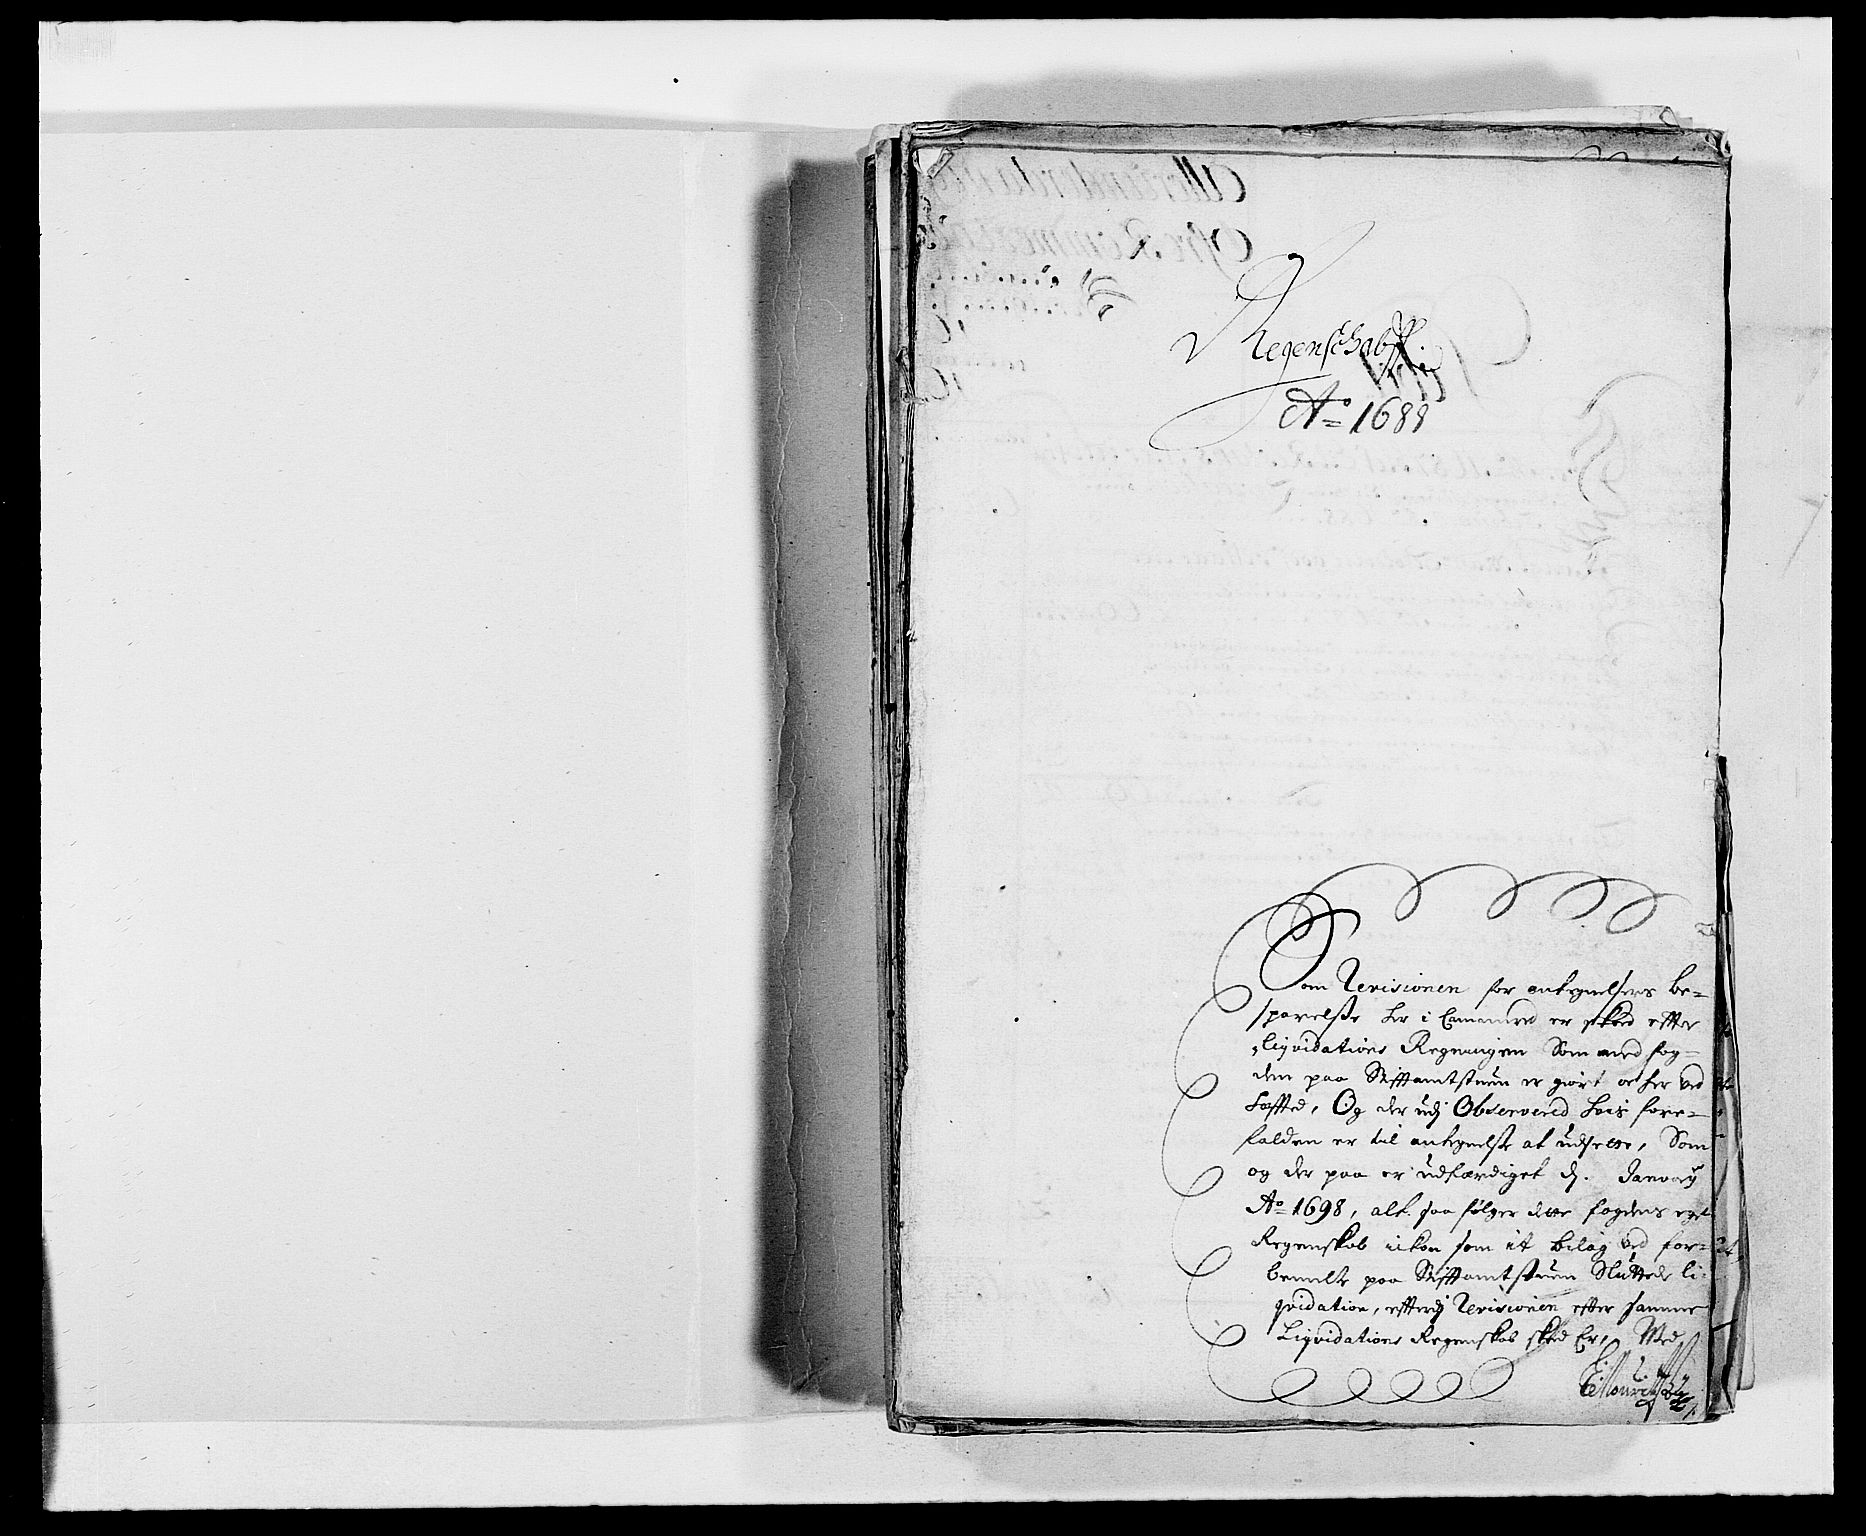 Regenschab
Ao 1688
Som Revisionen for antegnelsers be-
sparelse her i Cammered er skeed efter
liqvidations Regningen Som med fog-
den paa Stiftamtstuen er giort oc her ved
heffted, Og der udj Observered hvis fore-
falden er til antegnelse at udsette, Som
og der paa er udfærdiget dj. Janvarij
Ao 1698, alt saa følger dette fogdens eget
Regenskab ickon som it bilag ved for-
bemelte paa Stiftamtstuen Sluttede li-
qvidation, efftersom Revisionen efter samme
Liqvidations Regenskab skeed Er,